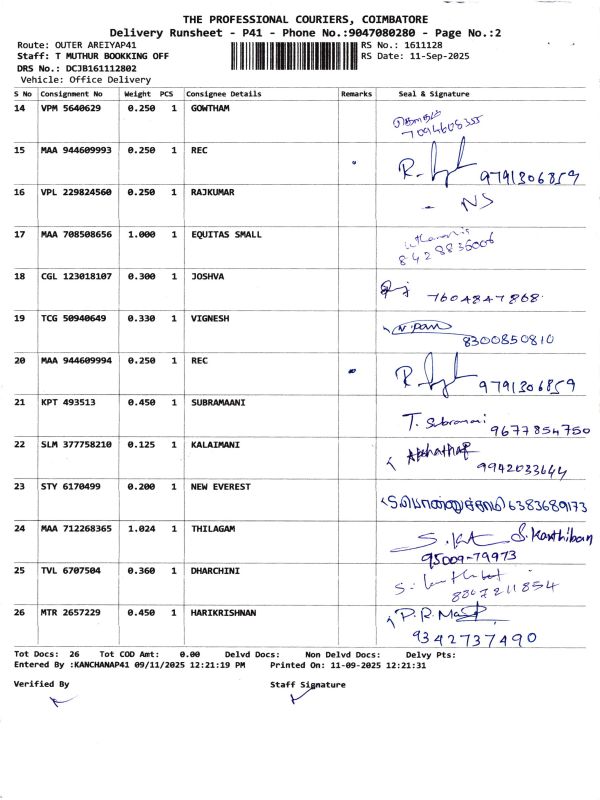 THE PROFESSIONAL COURIERS, COIMBATORE
Delivery Runsheet - P41 - Phone No.:9047080280 - Page No.:2
Route: OUTER AREIYAP41 RS No.: 1611128
Staff: T MUTHUR BOOKKING OFF RS Date: 11-Sep-2025
DRS No.: DCJB161112802
Vehicle: Office Delivery
S No Consignment No Weight PCS Consignee Details Remarks Seal & Signature
14 VPM 5640629 0.250 1 GOWTHAM
7094608355
15 MAA 944609993 0.250 1 REC
9791306859
16 VPL 229824560 0.250 1 RAJKUMAR
- NS
17 MAA 708508656 1.000 1 EQUITAS SMALL
8428836006
18 CGL 123018107 0.300 1 JOSHVA
7604847868
19 TCG 50940649 0.330 1 VIGNESH
8300850810
20 MAA 944609994 0.250 1 REC
9791306859
21 KPT 493513 0.450 1 SUBRAMAANI
T. Subramani 9677854750
22 SLM 377758210 0.125 1 KALAIMANI
9942033644
23 STY 6170499 0.200 1 NEW EVEREST
6383689173
24 MAA 712268365 1.024 1 THILAGAM
S. Karthiban
95009-79973
25 TVL 6707504 0.360 1 DHARCHINI
8867211854
26 MTR 2657229 0.450 1 HARIKRISHNAN
9342737490
Tot Docs: 26 Tot COD Amt: 0.00 Delvd Docs: Non Delvd Docs: Delvy Pts:
Entered By :KANCHANAP41 09/11/2025 12:21:19 PM Printed On: 11-09-2025 12:21:31
Verified By Staff Signature